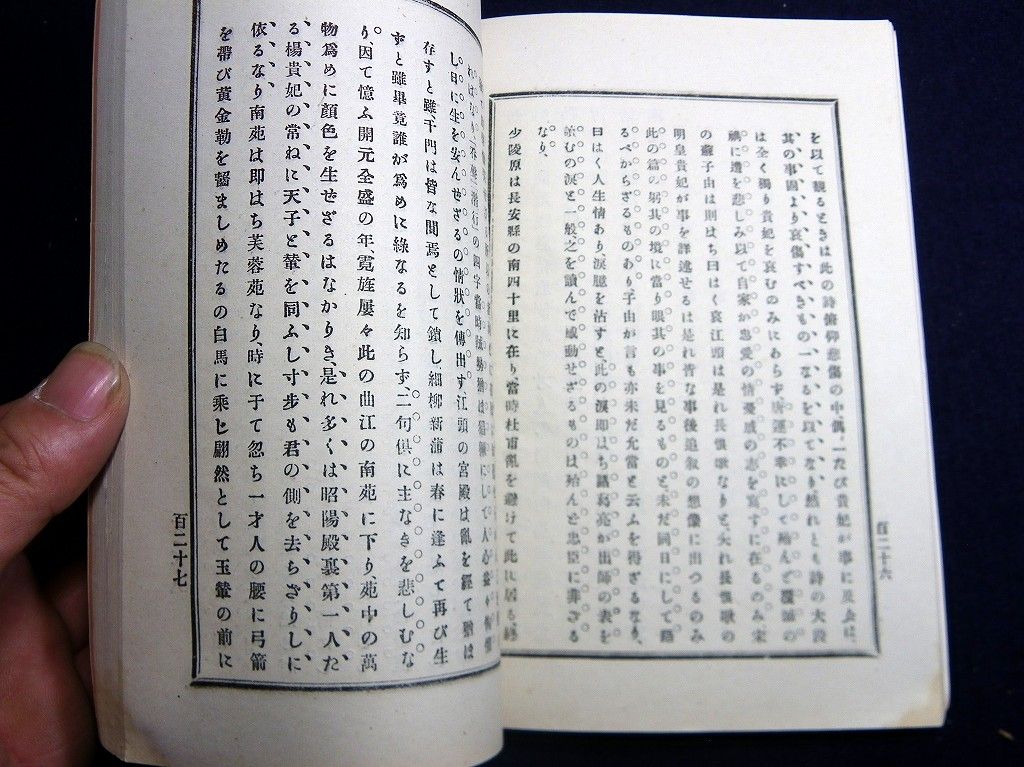 を以て観るときは此の詩俯仰悲傷の中偶〻一たび貴妃が事に及ぶは、
其の事固より哀傷すべきもの一なるを以てなり然れとも詩の大段
は全く獨り貴妃を哀むのみにあらず、唐運不幸にして殆んど覆滅の
禍に遭を悲しみ以て自家が忠愛の情憂感の志を寫すに在るのみ宋
の蘇子由は則はち曰はく哀江頭は是れ長恨歌なりと夫れ長恨歌の
明皇貴妃が事を詳述せるは是れ皆な事後追叙の想像に出つるのみ
此の篇の躬其の境に當り眼其の事を見るものと未だ同日にして語
るべからざるものあり子由が言も亦未だ允當と云ふを得ざるなり、
曰はく人生情あり、涙臆を沾すと、此の涙即はち諸葛亮が出師の表を
讀むの涙と一般之を讀んで感動せざるものは殆んと忠臣に非ざる
なり、
少陵原は長安縣の南四十里に在り當時杜甫亂を避けて此に居る
百二十六
ればなり「不敢潜行」の四字當時
し日に生を安んせざるの情狀を傳出す、江頭の宮殿は亂を經て猶は
存すと雖、千門は皆な閒焉として鎖し、細柳新蒲は春に逢ふて再び生
ずと雖畢竟誰が爲めに綠なるを知らず、二句倶に主なきを悲しむな
り、因て憶ふ開元全盛の年、霓旌屢々此の曲江の南苑に下り、苑中の萬
物爲めに顏色を生せざるはなかりき、是れ多くは昭陽殿裏第一人た
る楊貴妃の常ねに天子と輦を同ふし寸步も君の側を去らざりしに
依るなり南苑は即はち芙蓉苑なり、時に于て忽ち一才人の腰に弓箭
を帶び黃金勒を齧ましめたるの白馬に乘じ翩然として玉輦の前に
百二十七